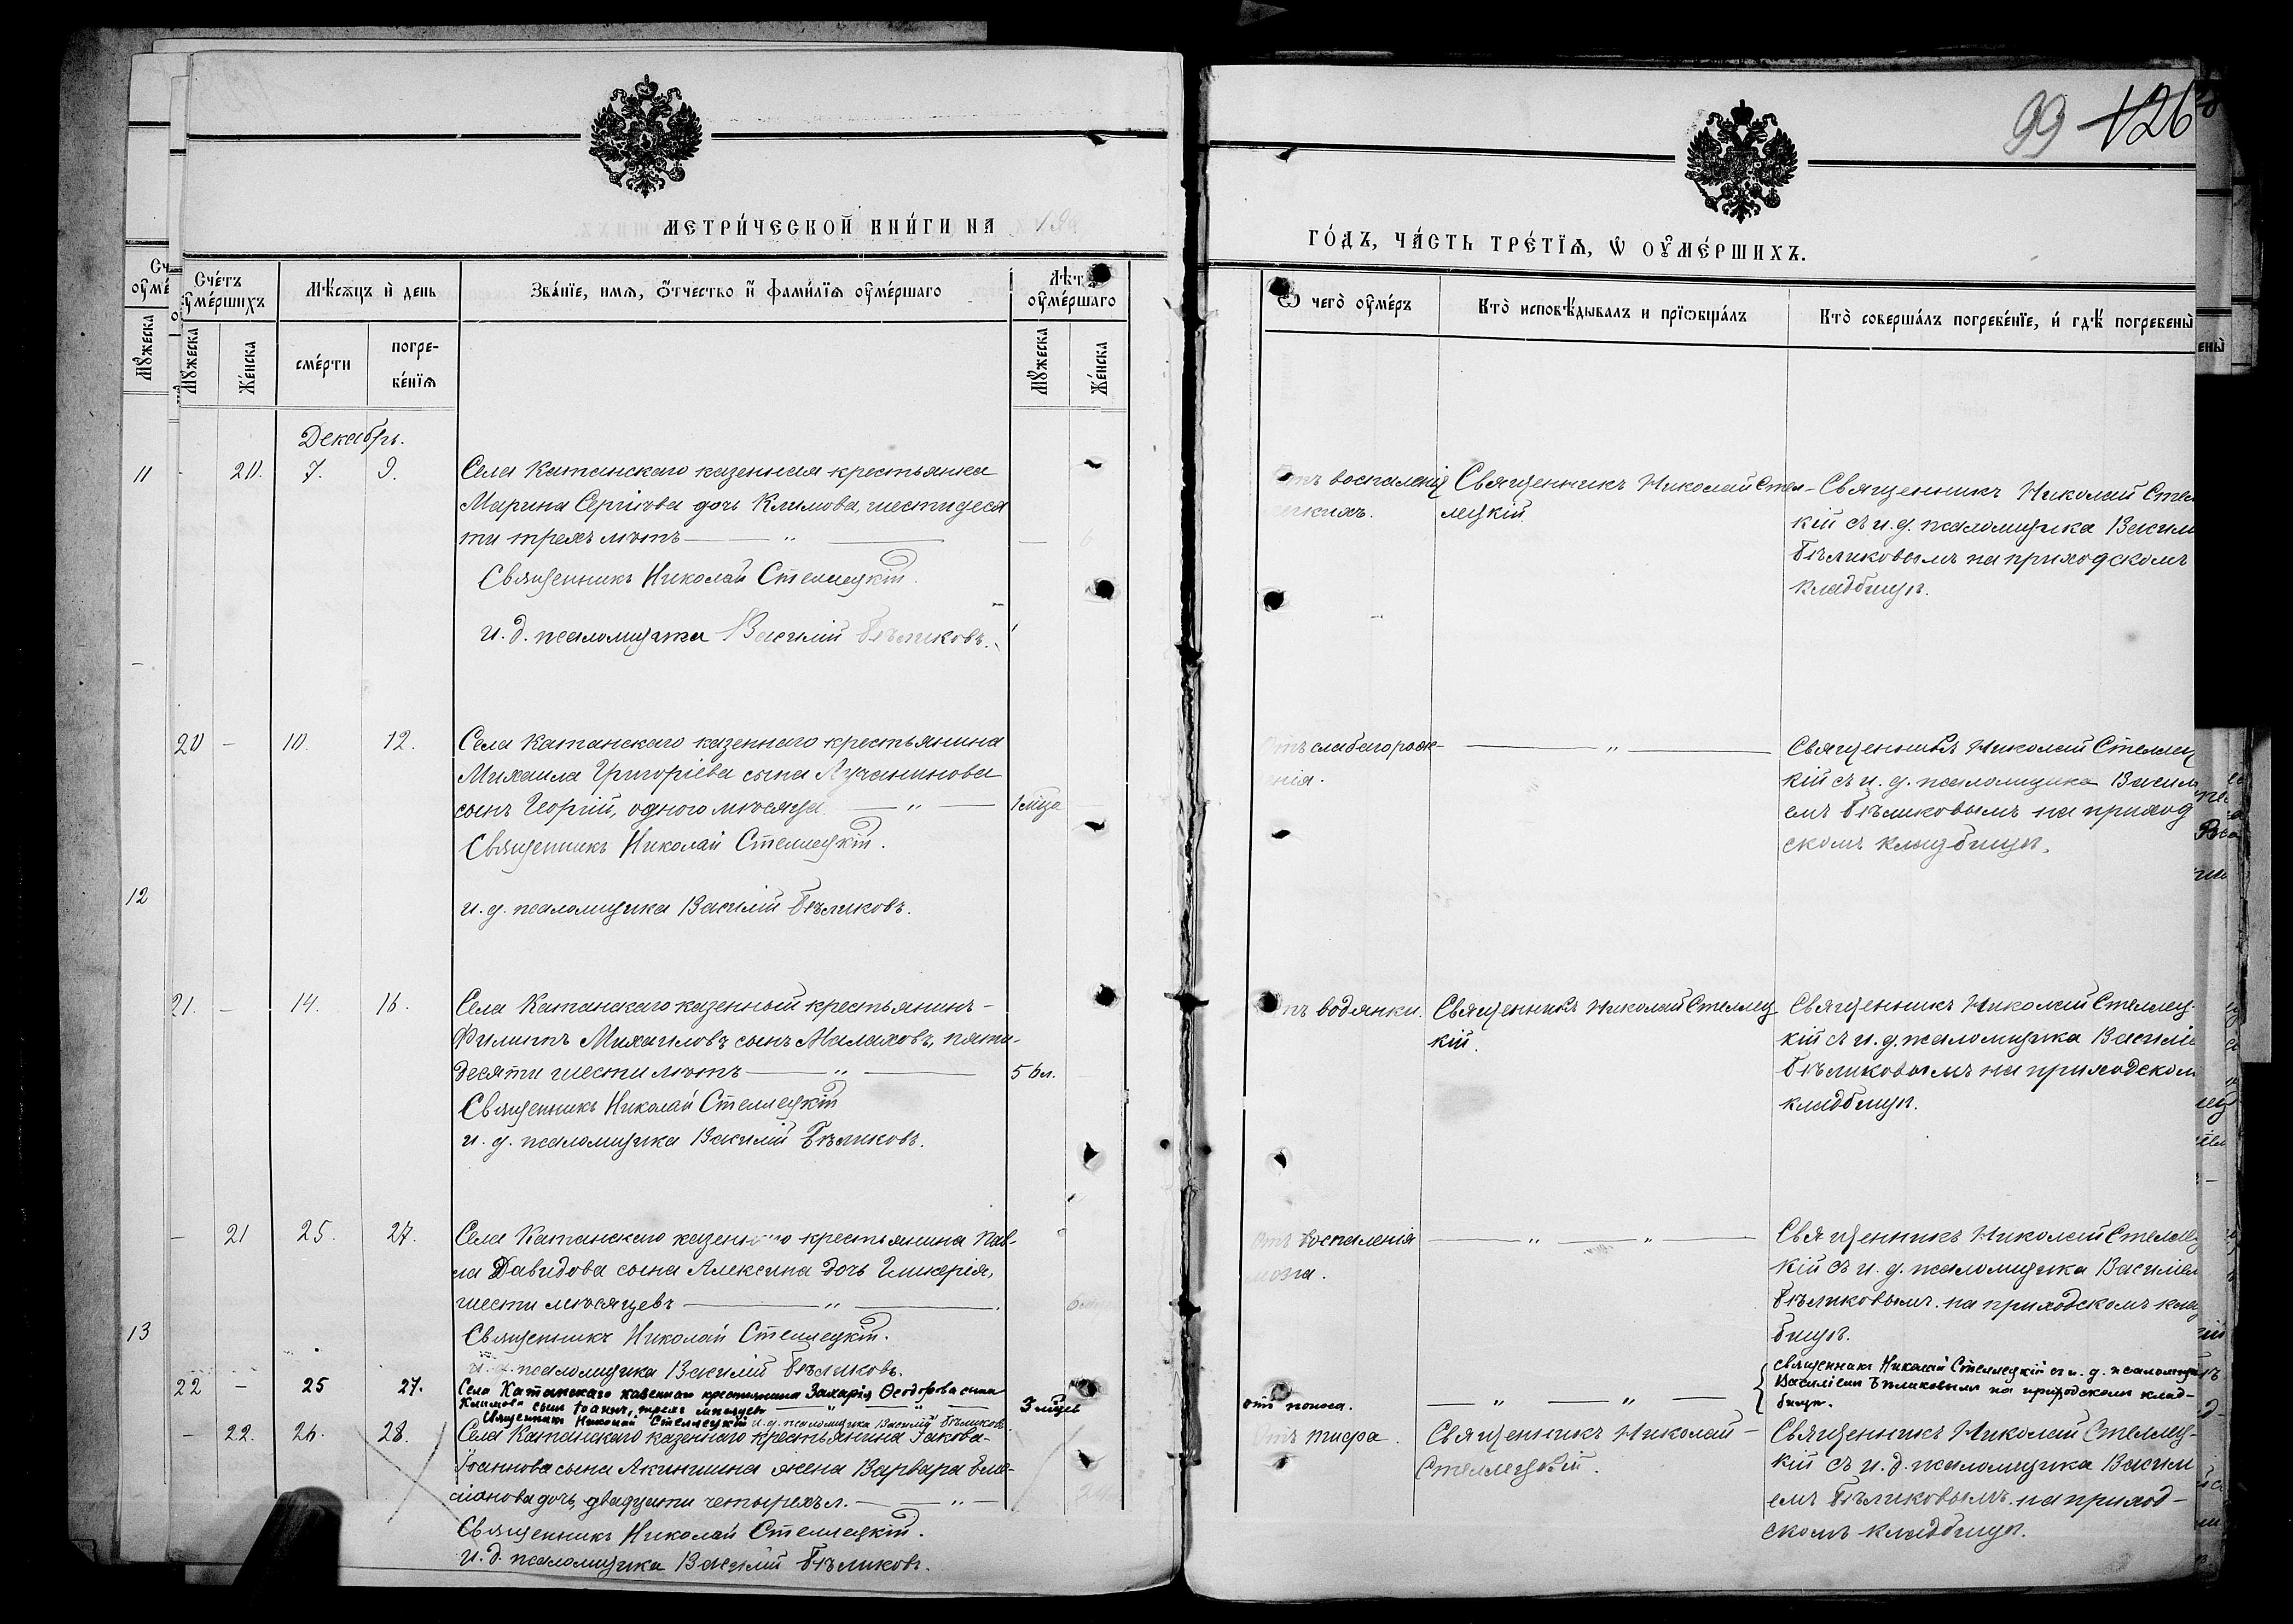 99 126
МЕТРИ́ЧЕСКОЙ КНИ́ГИ НА
ГО́ДЪ, ЧА́СТЬ ТРЕ́ТЇѦ, Ѡ҆ ОУ҆МЕ́РШИХЪ.
Сче́тъ оу҆ме́ршихъ
Мѣ́сѧцъ и҆ день
Зва́нїе, имѧ, ѻ҆́тчество и҆ фами́лїѧ оу҆ме́ршаго
Лѣт оу҆ме́ршаго
Ѿ чегѡ̀ оу҆ме́ръ
Кто̀ исповѣ́дывалъ и прїѡбща́лъ
Кто̀ соверша́лъ погребе́нїе, и҆ гдѣ̀ погребены̀
Мꙋ́жеска
Же́нска
сме́рти
погре-
бе́нїѧ
Мꙋ́жеска
Же́нска
Декабрь.
- 20. 7. 9.
Села Катанскаго казенная крестьянка
Марина Сергіева дочь Климова, шестидеся
ти трехъ лѣтъ — „ —
Священникъ Николай Стеллецкій.
и. д. псаломщика Василій Бѣликовъ.
воспаленія
легкихъ.
Священникъ Николай Стел-
лецкій.
Священникъ Николай Стел
кій съ и. д. псаломщика Васил
Бѣликовымъ на приходскомъ
кладбищѣ.
20 - 10. 12.
Села Катанскаго казеннаго крестьянина
Михаила Григоріева сына Лучанинова
сынъ Георгій, одного мѣсяца — „ —
1 мца
Священникъ Николай Стеллецкій.
и. д. псаломщика Василій Бѣликовъ.
Отъ слабаго рож-
енія.
— „ —
Священникъ Николай Стеллец
кій съ и. д. псаломщика Васил
емъ Бѣликовымъ на приход
скомъ кладбищѣ.
21. - 14. 16.
Села Катанскаго казенный крестьянинъ -
Филиппъ Михаиловъ сынъ Малаховъ, пяти-
десяти шести лѣтъ — „ —
56 л.
Священникъ Николай Стеллецкій
и. д. псаломщика Василій Бѣликовъ.
водянки.
Священникъ Николай Стеллец
кій.
Священникъ Николай Стеллец-
кій съ и. д. псаломщика Василіе
Бѣликовымъ на приходском
кладбищѣ.
- 21 25. 27.
Села Катанскаго казеннаго крестьянина Пав-
ла Давидова сына Алексина дочь Гликерія,
шести мѣсяцевъ — „ —
Священникъ Николай Стеллецкій.
и. д. псаломщика Василій Бѣликовъ.
Отъ воспаленія
мозга.
— „ — „ —
Священникъ Николай Стеллец
кій съ и. д. псаломщика Василіе
Бѣликовымъ на приходскомъ клад
бищѣ.
22 - 25 27.
Села Катанскаго казеннаго крестьянина Захарія Ѳеодорова сына
Климова сынъ Іоаннъ, трехъ мѣсяцевъ — „ — „ —
3 мцев
Священникъ Николай Стеллецкій и. д. псаломщика Василій Бѣликовъ.
отъ поноса.
— „ — „ —
священникъ Николай Стеллецкій съ и. д. псаломщи
Василіем Бѣликовымъ на приходскомъ клад-
бищѣ.
- 22. 26. 28.
Села Катанскаго казеннаго крестьянина Іакова
Іоаннова сына Акиншина жена Варвара Еме-
ліанова дочь, двадцати четырехъ л. — „ —
Священникъ Николай Стеллецкій.
и. д. псаломщика Василій Бѣликовъ.
Отъ тифа.
Священникъ Николай -
Стеллецкій.
Священникъ Николай Стеллец-
кій съ и. д. псаломщика Васил
емъ Бѣликовымъ на приход-
скомъ кладбищѣ.
11
12
13